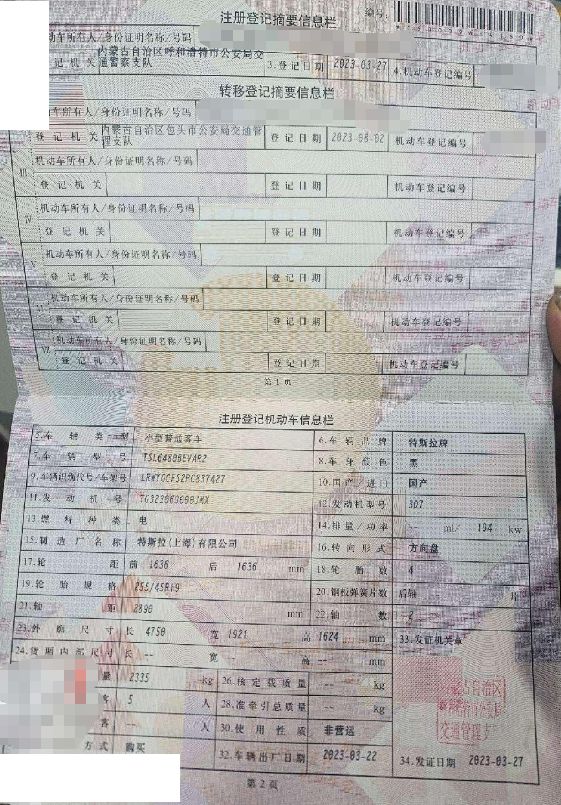 注册登记摘要信息栏
编号:
动车所有人/身份证明名称/号码
登记机关 内蒙古自治区呼和浩特市公安局交通警察支队 3.登记日期 2023-03-27 4.机动车登记编号
转移登记摘要信息栏
机动车所有人/身份证明名称/号码
登记机关 内蒙古自治区包头市公安局交通管理支队 登记日期 2023-08-02 机动车登记编号
III 机动车所有人/身份证明名称/号码
登记机关 登记日期 机动车登记编号
IV 机动车所有人/身份证明名称/号码
登记机关 登记日期 机动车登记编号
机动车所有人/身份证明名称/号码
登记机关 登记日期 机动车登记编号
机动车所有人/身份证明名称/号码
登记机关 登记日期 机动车登记编号
机动车所有人/身份证明名称/号码
登记机关 登记日期 机动车登记编号
第1页
注册登记机动车信息栏
5.车辆类型 小型普通客车 6.车辆品牌 特斯拉牌
7.车辆型号 TSL6480BEVAR2 8.车身颜色 黑
9.车辆识别代号/车架号 10.国产/进口 国产
11.发动机号 12.发动机型号 3D7
13.燃料种类 电 14.排量/功率 -- ml/ 194 kw
15.制造厂名称 特斯拉(上海)有限公司 16.转向形式 方向盘
17.轮距 前 1636 后 1636 mm 18.轮胎数 4
19.轮胎规格 255/45R19 20.钢板弹簧片数 后轴 片
21.轴距 2890 mm 22.轴数 2
23.外廓尺寸 长 4750 宽 1921 高 1624 mm 33.发证机关章
24.货厢内部尺寸 长 -- 宽 -- 高 -- mm
量 2335 kg 26.核定载质量 -- kg
客 5 人 28.准牵引总质量 -- kg
客 -- 人 30.使用性质 非营运
方式 购买 32.车辆出厂日期 2023-03-22 34.发证日期 2023-03-27
交通管理支
第2页